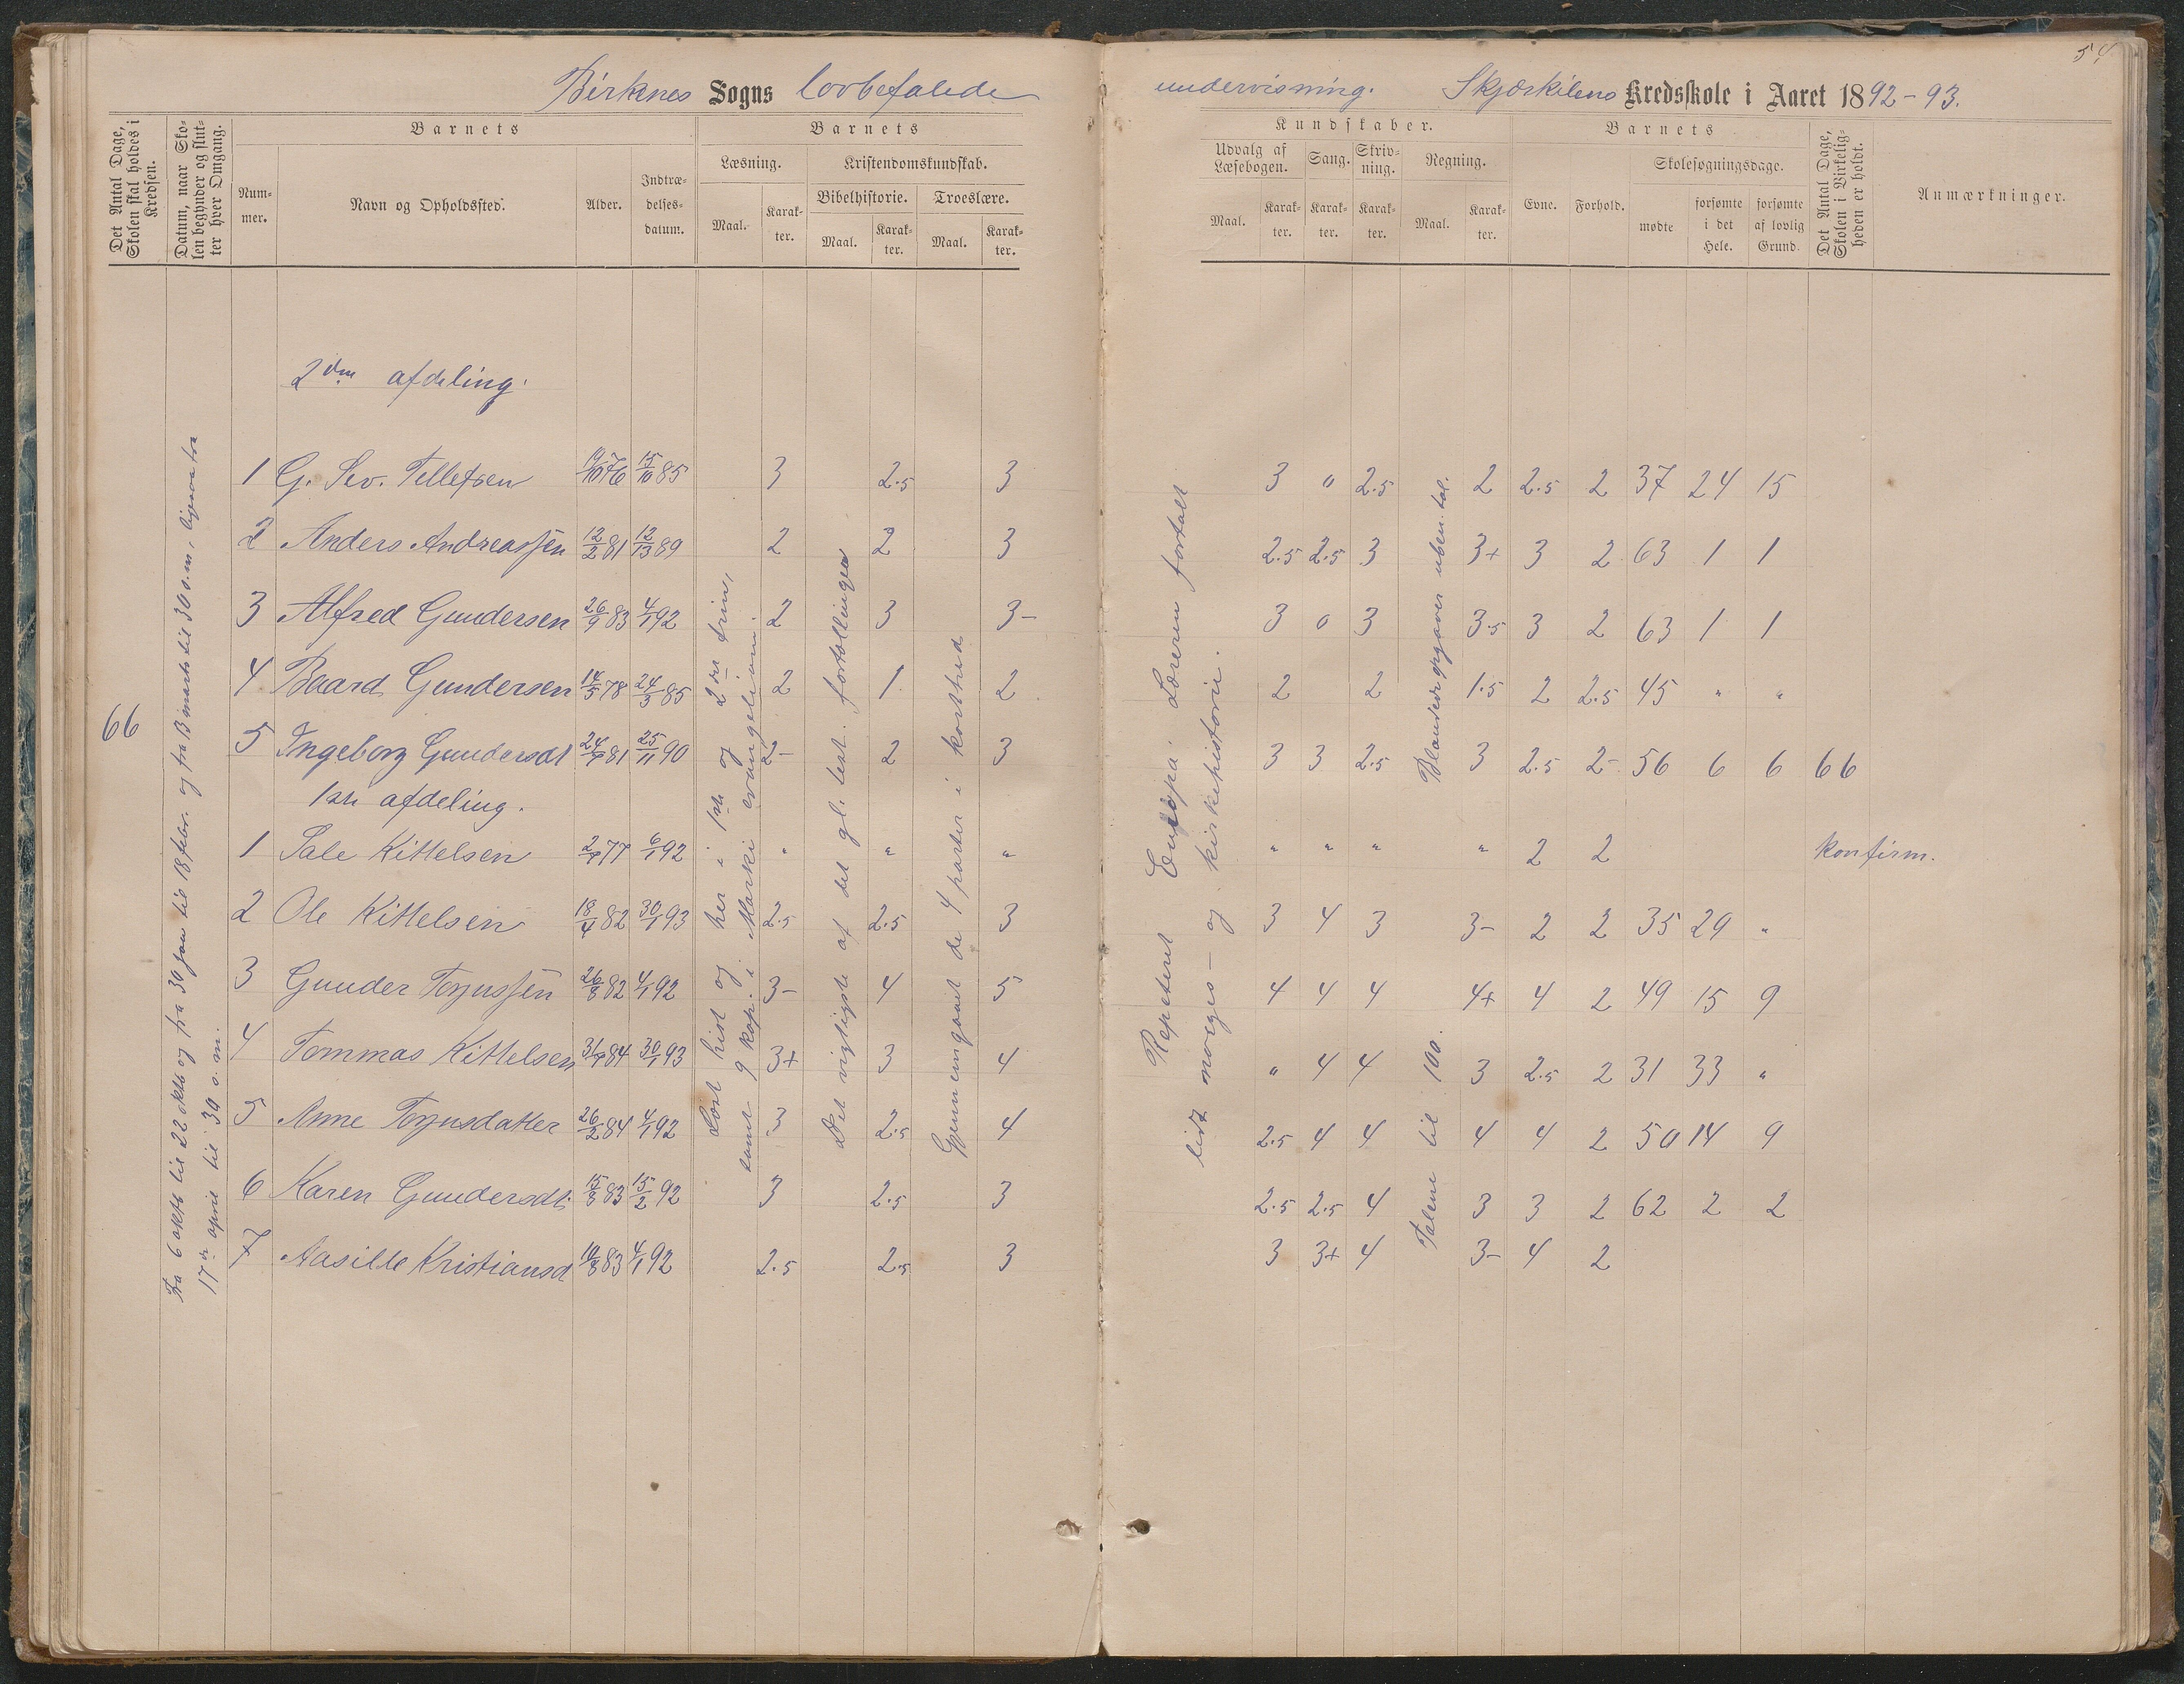 54
Birkenes Sogns lovbefalede undervisning. Skjærkilens Kredsskole i Aaret 1892-93.
Det Antal Dage, Skolen skal holdes i Kredsen.
Datum, naar Skolen begynder og slutter hver Omgang.
Barnets
Nummer.
Navn og Opholdssted.
Alder.
Indtrædelsesdatum.
Barnets
Læsning.
Maal.
Karakter.
Kristendomskundskab.
Bibelhistorie.
Maal.
Karakter.
Troeslære.
Maal.
Karakter.
Kundskaber.
Udvalg af Læsebogen.
Maal.
Karakter.
Sang.
Karakter.
Skrivning.
Karakter.
Regning.
Maal.
Karakter.
Barnets
Evne.
Forhold.
Skolesøgningsdage.
mødte
forsømte i det Hele.
forsømte af lovlig Grund.
Det Antal Dage, Skolen i Virkeligheden er holdt.
Anmærkninger.
66
Fra 6 oktb til 22 oktb og fra 30 jan til 18 febr. og fra 13 marts til 30 s.m, ligesaa fra
17de april til 30 s.m.
Læst hist og her i 1ste og 2det trin,
samt 9 kap. i Marki evangelium.
Det vigtigste af det gl. test. fortællinger
Gjennemgaaet de 4 parter i korthed
Repeteret Europa. Læreren fortalt
lidt norges- og kirkehistorie.
Blandede opgaver uben. tal.
Talene til 100.
2den afdeling.
1 G. Sev. Tellefsen 19/10 76 15/10 85 3 2.5 3 3 0 2.5 2 2.5 2 37 24 15
2 Anders Andreassen 12/2 81 12/13 89 2 2 3 2.5 2.5 3 3+ 3 2 63 1 1
3 Alfred Gundersen 26/9 83 4/1 92 2 3 3- 3 0 3 3.5 3 2 63 1 1
4 Baard Gundersen 14/5 78 24/3 85 2 1 2 2 2 1.5 2 2.5 45 " "
5 Ingeborg Gundersdt 24/9 81 25/11 90 2- 2 3 3 3 2.5 3 2.5 2- 56 6 6 66
1ste afdeling.
1 Tale Kittelsen 2/9 77 6/1 92 " " " " " " " 2 2 konfirm.
2 Ole Kittelsen 18/4 82 30/1 93 2.5 2.5 3 3 4 3 3- 2 2 35 29 "
3 Gunder Torjussen 26/8 82 4/1 92 3- 4 5 4 4 4 4+ 4 2 49 15 9
4 Tommas Kittelsen 31/7 84 30/1 93 3+ 3 4 " 4 4 3 2.5 2 31 33 "
5 Anne Torjusdatter 26/2 84 4/1 92 3 2.5 4 2.5 4 4 4 4 2 50 14 9
6 Karen Gundersdt. 15/8 83 15/2 92 3 2.5 3 2.5 2.5 4 3 3 2 62 2 2
7 Aasille Kristiansd 10/8 83 4/1 92 2.5 2.5 3 3 3+ 4 3- 4 2